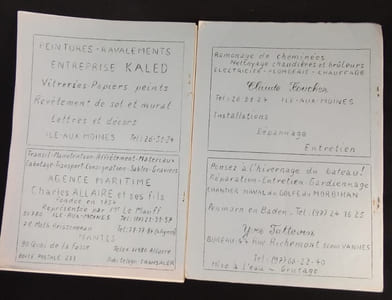 PEINTURES - RAVALEMENTS
ENTREPRISE KALED
Vitreries Papiers peints
Revêtement de sol et mural
Lettres et décors
ILE-AUX-MOINES Tel: 26-31-24
Transit-Manutention-Affrètement-Materiaux
Cabotage-Transport-Consignation-Sables-Graviers
AGENCE MARITIME
Charles ALLAIRE et ses fils
Fondée en
Représentée par Mr Le
ILE-AUX-MOINES
NANTES
Quai de la Fosse
BOITE POSTALE
Ramonage de cheminées
Nettoyage chaudières et brûleurs
ELECTRICITE - PLOMBERIE - CHAUFFAGE
Claude
Tel: 26 ILE-AUX-MOINES
Installations
Dépannage
Entretien
Pensez à l'hivernage du bateau!
Réparation-Entretien-Gardiennage
CHANTIER NAVAL DU GOLFE DU MORBIHAN
en Baden - Tel: (97) 24 16 25
BUREAU: Rue Richemont VANNES
Tel: (97) 66-22-40
Mise à l'eau - Grutage